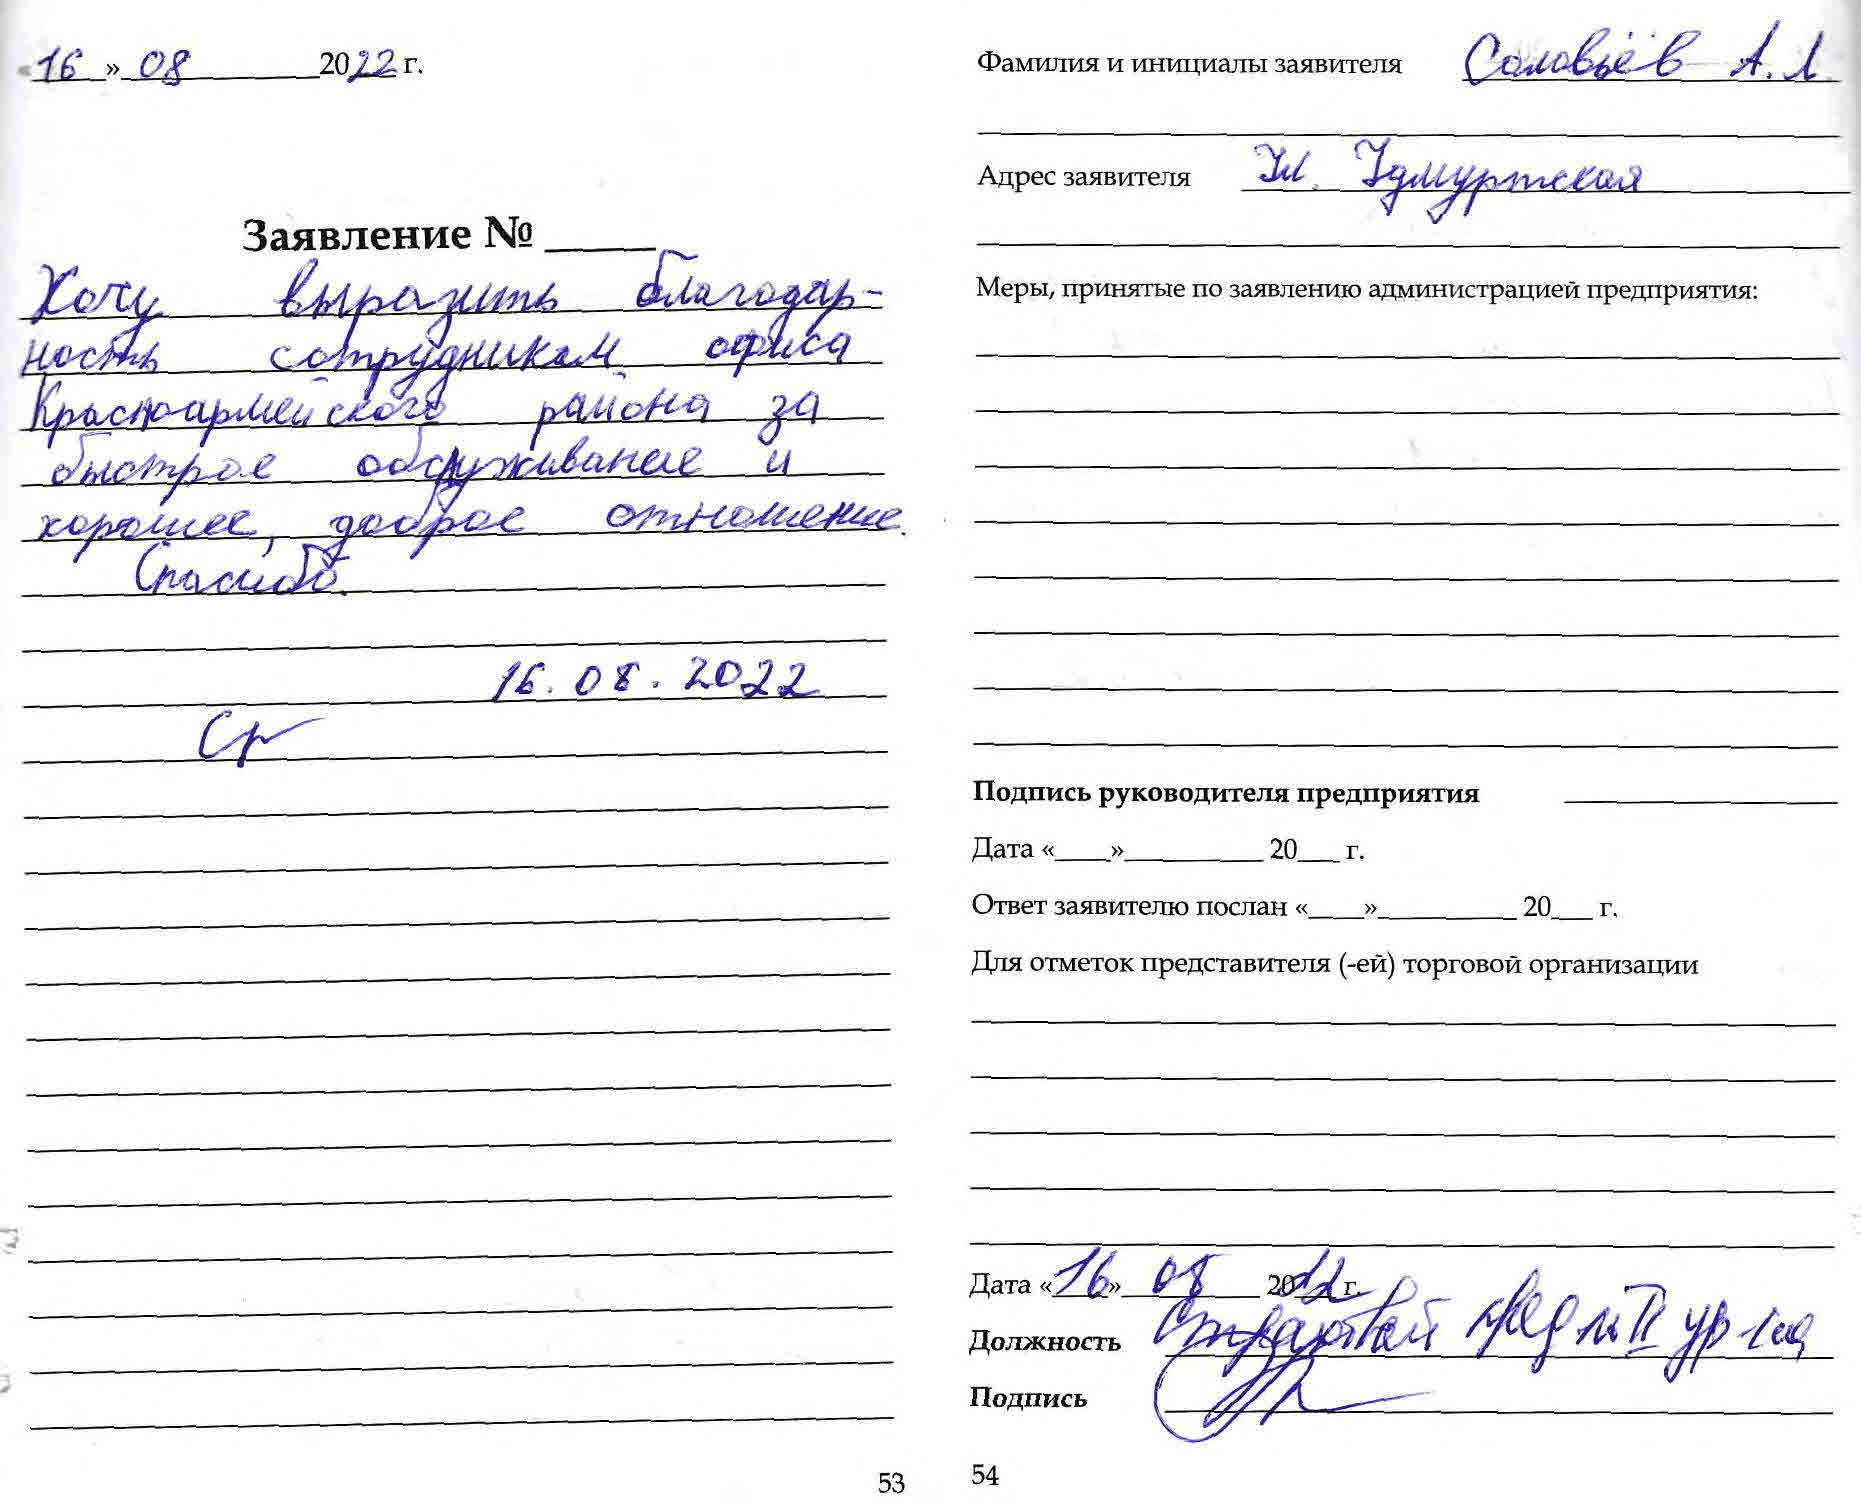 «16» 08 2022 г.
Заявление №
Хочу выразить благодар-
ность сотрудникам офиса
Красноармейского района за
быстрое обслуживание и
хорошее, доброе отношение.
Спасибо.
16.08.2022
53
Фамилия и инициалы заявителя Соловьёв А.Л.
Адрес заявителя Ул. Удмуртская
Меры, принятые по заявлению администрацией предприятия:
Подпись руководителя предприятия
Дата «____»__________ 20___ г.
Ответ заявителю послан «____»__________ 20___ г.
Для отметок представителя (-ей) торговой организации
Дата «16» 08 2022 г.
Должность Страховой II
Подпись
54